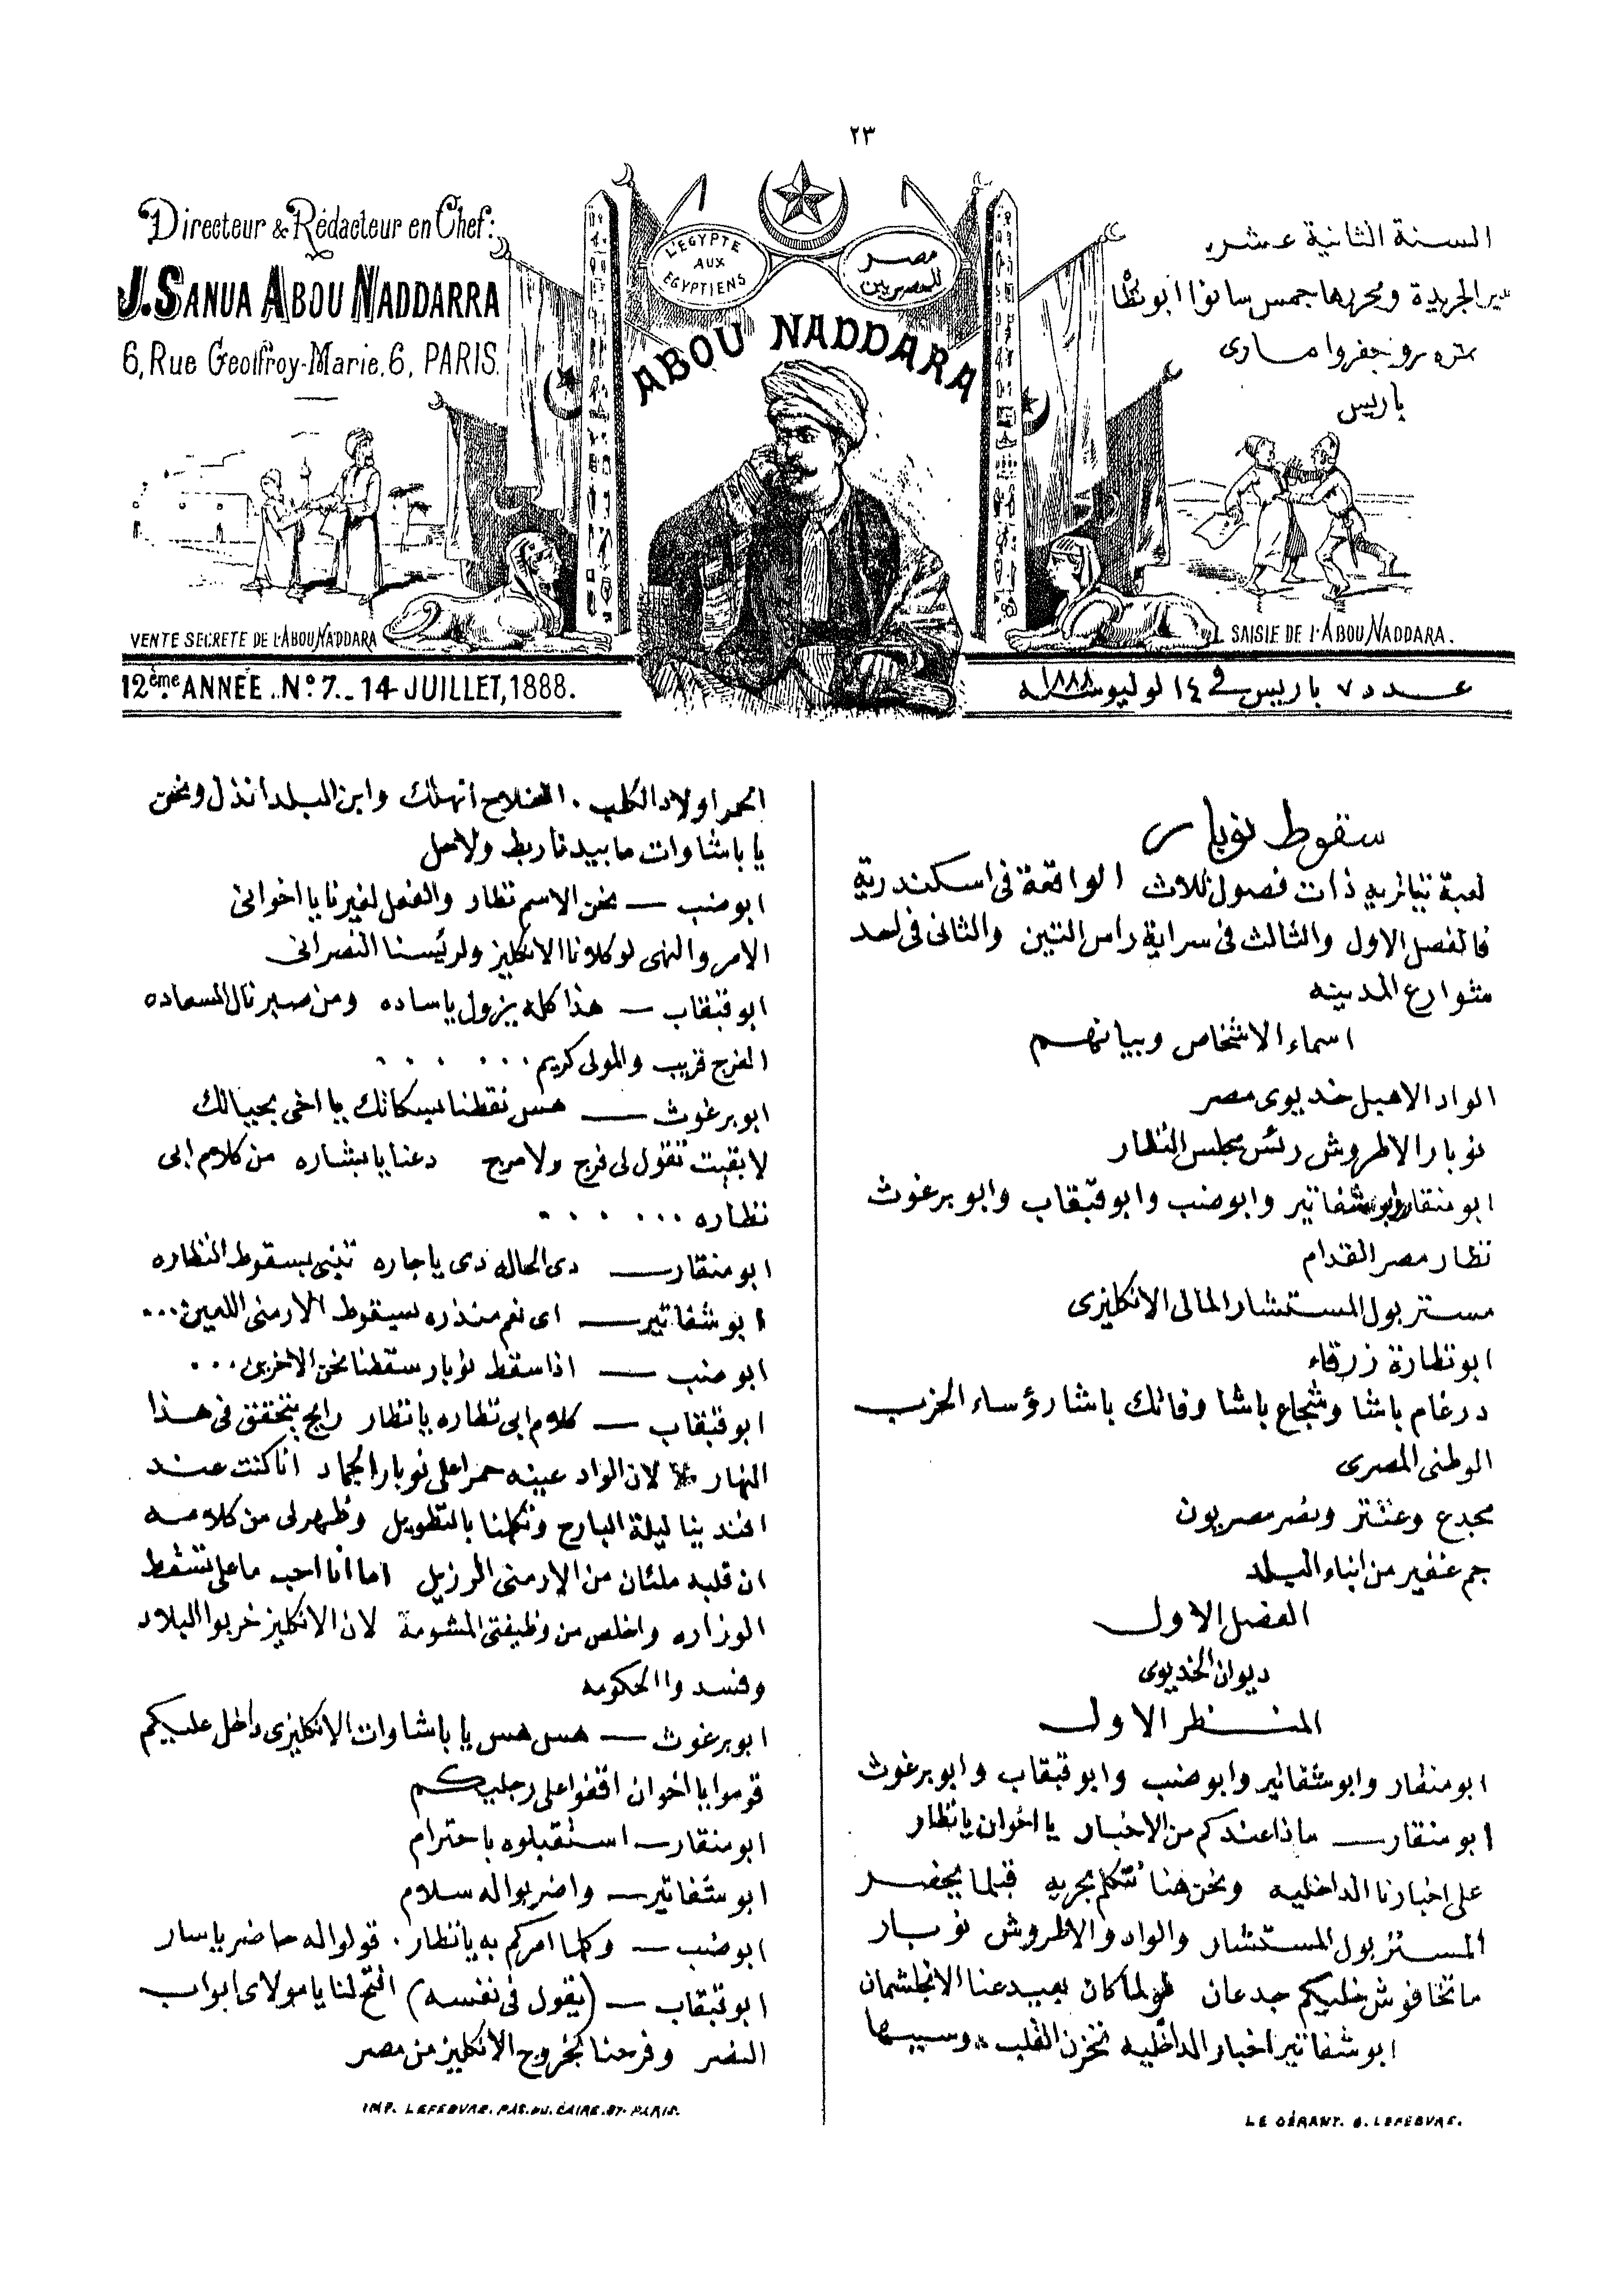 ٢٣
Directeur & Rédacteur en Chef:
J. SANUA ABOU NADDARRA
6, Rue Geoffroy-Marie, 6, PARIS.
L'EGYPTE
AUX
EGYPTIENS
مصر
للمصريين
ABOU NADDARA
السنة الثانية عشر
مدير الجريدة ومحررها جمس سانوا ابو نظا
نمره ٦ رو جفروا مارى
باريس
VENTE SECRETE DE L'ABOU NADDARA
SAISIE DE L'ABOU NADDARA.
12ème ANNÉE .. No. 7. - 14 JUILLET, 1888.
عدد ٧ باريس فى ١٤ لوليو سنة ١٨٨٨
سقوط نوبار
لعبة تياتريه ذات فصول ثلاث الواقعة فى اسكندرية
فالفصل الاول والثالث فى سراية راس التين والثانى فى احد
شوارع المدينه
اسماء الاشخاص وبيانهم
الواد الاهبل خديوى مصر
نوبار الاطروش رئس مجلس النظار
ابو منقار وابو شفاتير وابو ضب وابو قبقاب وابو برغوث
نظار مصر القدام
مستر بول المستشار المالى الانكليزى
ابو نظارة زرقاء
درغام باشا وشجاع باشا وفاتك باشا رؤساء الحزب
الوطنى المصرى
مجدع وعنتر ونصر مصريون
جم غفير من ابناء البلد
الفصل الاول
ديوان الخديوى
المنظر الاول
ابو منقار وابو شفاتير وابو ضب وابو قبقاب وابو برغوث
ابو منقار — ماذا عندكم من الاخبار يا اخوان يا نظار
على اخبارنا الداخليه ونحن هنا نتكلم بحريه قبلما يحضر
المستر بول المستشار والواد والاطروش نوبار
ما تخافوش خليكم جدعان طولما كان بعيد عنا الانجلشمان
ابو شفاتير اخبار الداخليه تحزن القلب وسببها
الحمر اولاد الكلب . الفلاح انهلك وابن البلد انذل ونحن
يا باشاوات ما بيدنا ربط ولا حل
ابو ضب — نحن الاسم نظار والفعل لغيرنا يا اخوانى
الامر والنهى لوكلانا الانكليز ولرئيسنا النصرانى
ابو قبقاب — هذا كله يزول يا ساده ومن صبر نال السعاده
الفرج قريب والمولى كريم . . . . . . .
ابو برغوث — هس نقطنا بسكاتك يا اخى بحياتك
لا بقيت تقول لى فرج ولا مرج دعنا يا بشاره من كلام ابى
نظاره . . . . . . .
ابو منقار — دى الحاله دى يا جاره تنبئ بسقوط النظاره
ابو شفاتير — اى نعم منذره بسقوط الارمنى اللعين . . .
ابو ضب — اذا سقط نوبار سقطنا نحن الاخرين . . .
ابو قبقاب — كلام ابى نظاره يا نظار رايح يتحقق فى هذا
النهار لان الواد عينه حمرا على نوبار الحمار انا كنت عند
افندينا ليلة البارح وتكلمنا بالتطويل وظهر لى من كلامه
ان قلبه ملئان من الارمنى الرزيل اما انا احب ما على تسقط
الوزاره واخلص من وظيفتى المشومة لان الانكليز خربوا البلاد
وفسدوا الحكومه
ابو برغوث — هس هس يا باشاوات الانكليزى داخل عليكم
قوموا يا اخوان اقفوا على رجليكم
ابو منقار — استقبلوه باحترام
ابو شفاتير — واضربوا له سلام
ابو ضب — وكلما امركم به يا نظار . قولوا له حاضر يا سار
ابو قبقاب — (يقول فى نفسه) افتح لنا يا مولاى ابواب
النصر وفرحنا بخروج الانكليز من مصر
IMP. LEFEBVRE. PAS. DU. CAIRE. 87. PARIS.
LE GÉRANT. G. LEFEBVRE.